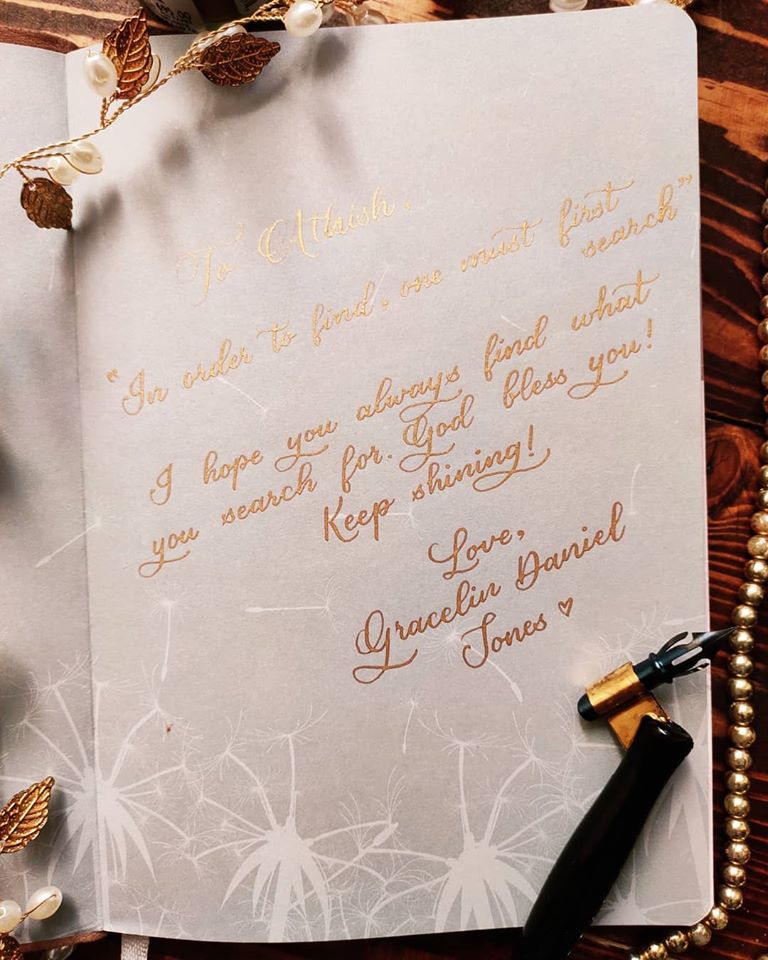 To Athish,
"In order to find, one must first
search"
I hope you always find what
you search for. God bless you!
Keep shining!
Love,
Gracelin Daniel
Jones ♡